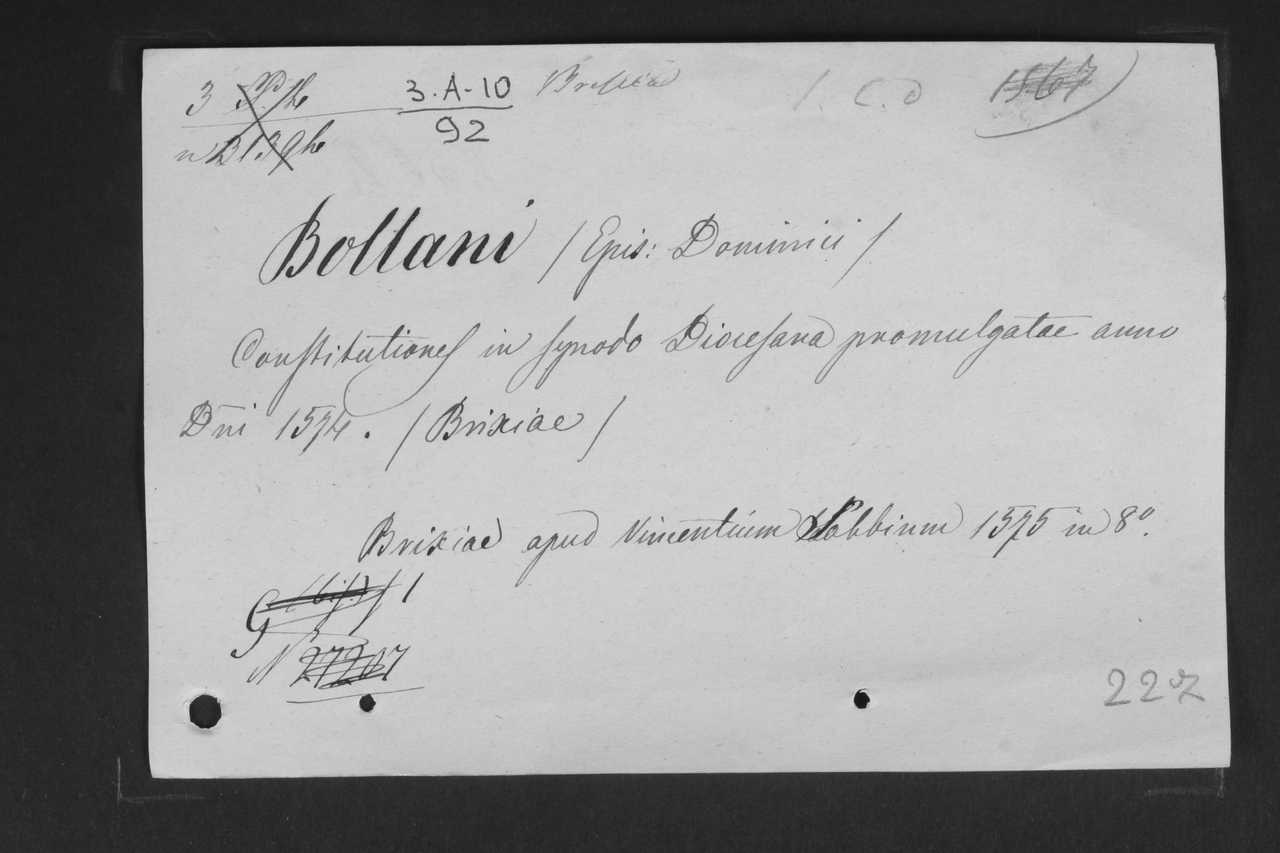 3 3.A-10 Brescia 1567
92
Bollani / Epis: Dominici /
Constitutiones in synodo Diocesana promulgatae anno
Dñi 1574. / Brixiae /
Brixiae apud Vincentium Sabbium 1575 in 8º.
G 1
N 27207
227